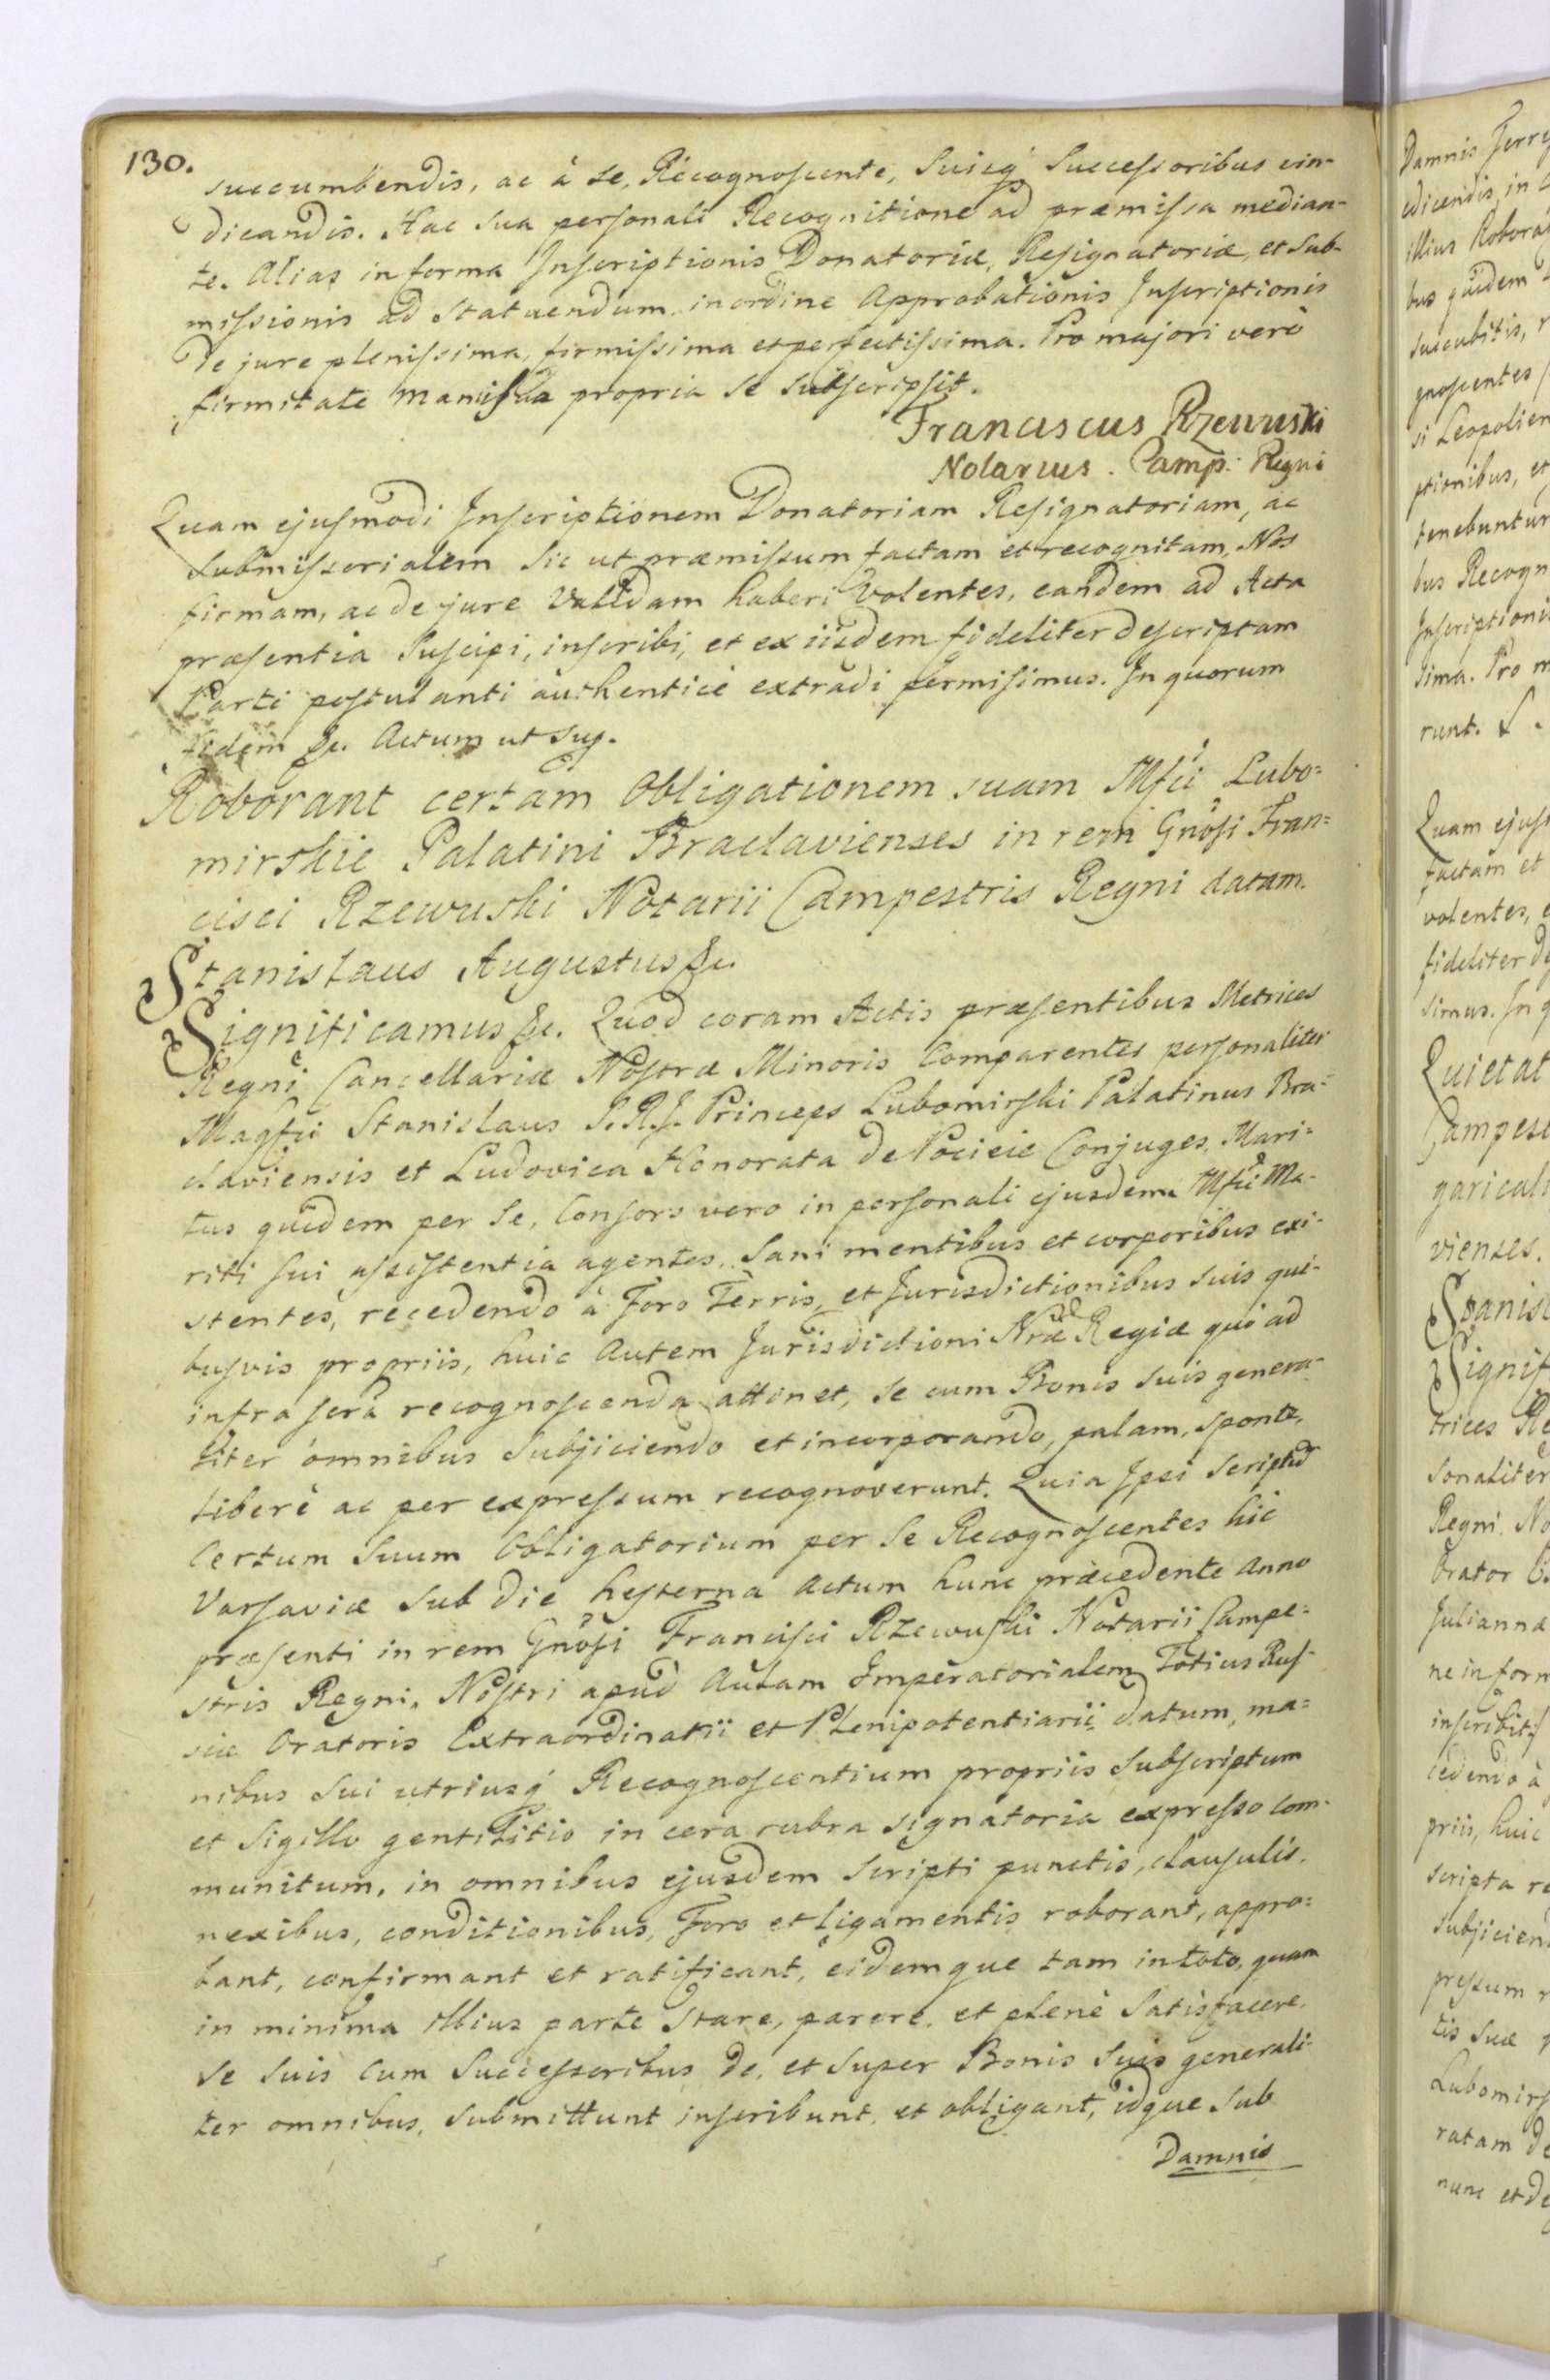 130.
succumbendis, ac à se, Recognoscente, Suisq́ Successoribus evin-
dicandis. Hac sua personali Recognitione ad præmissa median-
te. Alias in forma Inscriptionis Donatoriæ, Resignatoriæ, et Sub-
missionis ad Statuendum, in ordine Approbationis Inscriptionis
de jure plenissima, firmissima et perfectissima. Pro majori verò
firmitate manu sua propria se subscripsit.
Franciscus Rzewuski
Notarius. Camp: Regni
Quam ejusmodi Inscriptionem Donatoriam Resignatoriam, ac
Submissorialem sic ut præmissum factam et recognitam, Nos
firmam, ac de jure Validam haberi Volentes, eandem ad Acta
præsentia Suscipi, inscribi, et ex iisdem fideliter descriptam
Parti postulanti authenticè extradi permisimus. In quorum
fidem &c. Actum ut sup.
Roborant certam Obligationem suam Mfci Lubo=
mirskie Palatini Braclavienses in rem Gnosi Fran=
cisci Rzewuski Notarii Campestris Regni datam.
Stanislaus Augustus &c.
Significamus &c. Quod coram Actis præsentibus Metrices
Regni Cancellariæ Nostræ Minoris Comparentes personaliter
Magfci Stanislaus S.R.J. Princeps Lubomirski Palatinus Bra-
claviensis et Ludovica Honorata de Pocieie Conjuges, Mari=
tus quidem per Se, Consors vero in personali ejusdem Mfci Ma-
riti sui assistentia agentes, Sani mentibus et corporibus exi-
stentes, recedendo à Foro Terris, et Jurisdictionibus suis qui-
busvis propriis, huic autem Jurisdictioni Nræ Regiæ quo ad
infra scra recognoscenda attinet, se cum Bonis suis genera-
liter omnibus Subjiciendo et incorporando, palam, sponte,
liberè ac per expressum recognoverunt. Quia Ipsi Scriptum
Certum Suum Obligatorium per Se Recognoscentes hic
Varsaviæ Sub die hesterna Actum hunc præcedente Anno
præsenti in rem Gnosi Francisci Rzewuski Notarii Campe=
stris Regni, Nostri apud Aulam Imperatorialem Totius Rus-
siæ Oratoris Extraordinarii et Plenipotentiarii datum, ma=
nibus Sui utriusq́ Recognoscentium propriis Subscriptum
et Sigillo gentilitio in cera rubra signatoria expresso com-
munitum, in omnibus ejusdem Scripti punctis, clausulis,
nexibus, conditionibus, Foro et ligamentis roborant, appro=
bant, confirmant et ratificant, eidemque tam in toto, quam
in minima illius parte Stare, parere, et plenè Satisfacere,
se Suis Cum Successoribus de, et Super Bonis Suis generali-
ter omnibus, submittunt inscribunt, et obligant, idque Sub
Damnis
Damnis Terre
dicendis, in
illius Robora
bus quidem
succubitis, r
gnoscentes
si Leopolien
ptionibus, et
tenebuntur
bus Recogn
Inscriptioni
sima. Pro m
runt.
Quam ejus
factam et
volentes, e
fideliter de
simus. In q
Quietat
Campes
garicali
vienses.
Stanisl
Signif
trices Re
sonaliter
Regni. No
Orator
Julianna
ne in form
inscribit
cedendo à
priis, huic
scripta re
subjicien
pressum r
tis suæ p
Lubomirs
ratam de
nunc et de